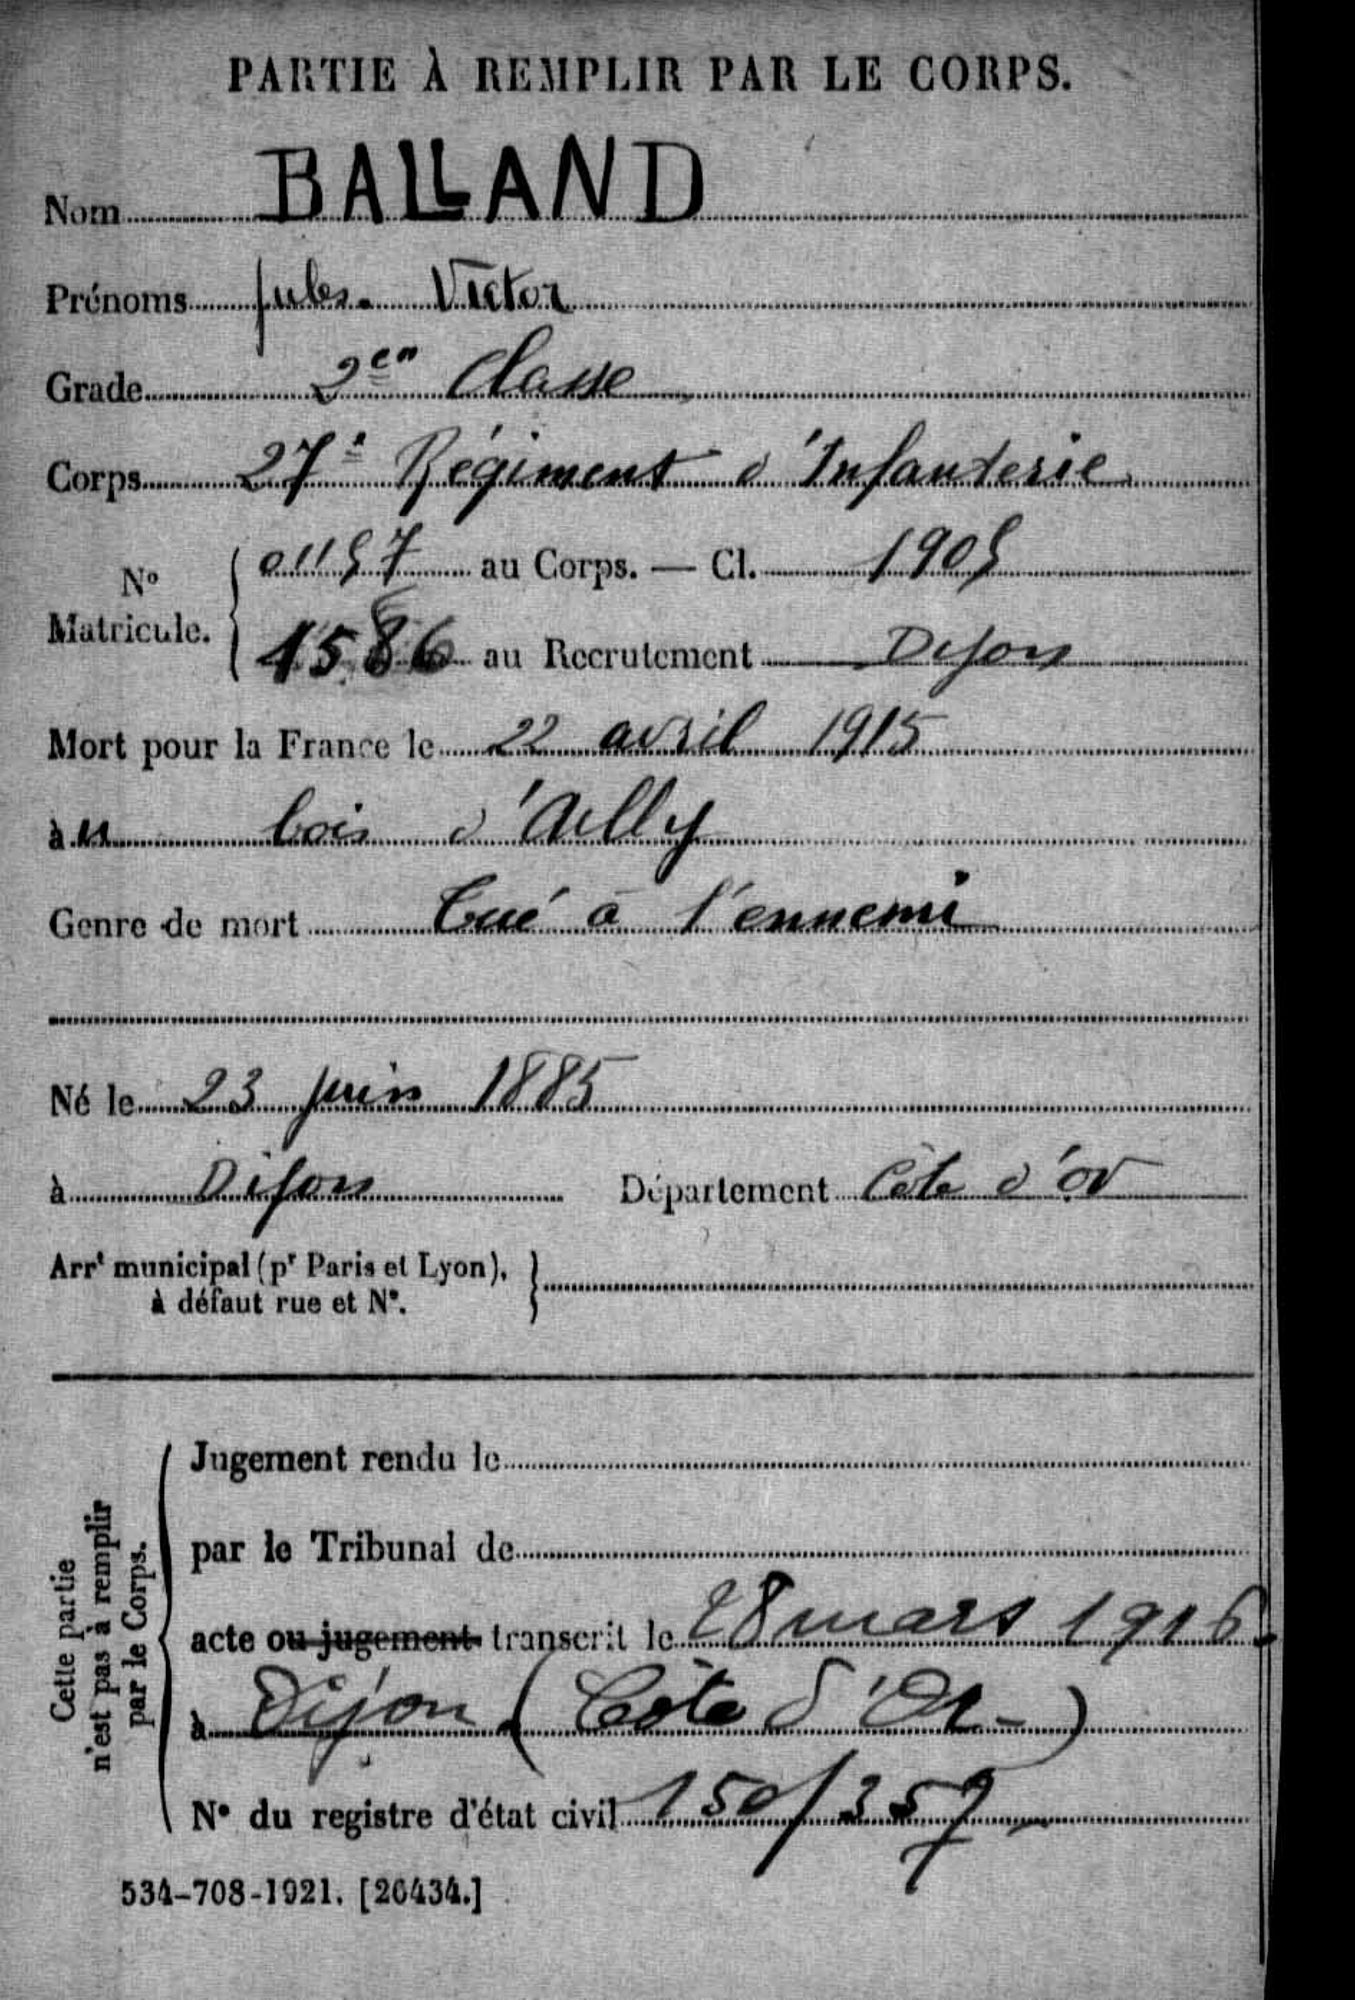 PARTIE À REMPLIR PAR LE CORPS.
Nom BALLAND
Prénoms Jules. Victor
Grade 2en Classe
Corps 27e Régiment d'Infanterie
No Matricule.
01157 au Corps. — Cl. 1905
1586 au Recrutement Dijon
Mort pour la France le 22 avril 1915
à u bois d'Ailly
Genre de mort Tué à l'ennemi
Né le 23 juin 1885
à Dijon Département Côte d'or
Arrt municipal (pr Paris et Lyon),
à défaut rue et No.
Cette partie
n'est pas à remplir
par le Corps.
Jugement rendu le
par le Tribunal de
acte ou jugement transcrit le 28 mars 1916.
à Dijon (Côte d'Or-)
No du registre d'état civil 150/357
534-708-1921. [26434.]